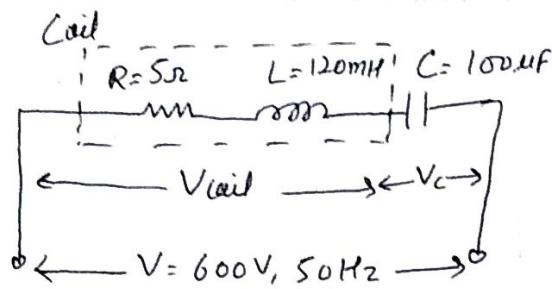 Coil
R=5Ω L=120mH C=100μF
Vcoil Vc
V=600V, 50Hz